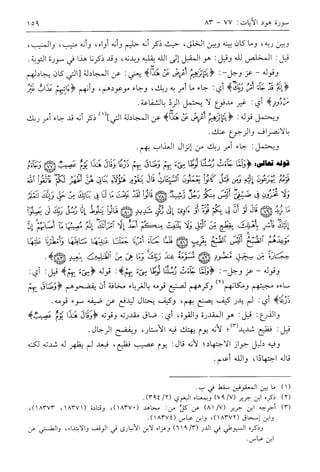 سورة هود الآيات: ٧٧ - ٨٣ ١٥٩
وبين ربه، وما كان بينه وبين الخلق، حيث ذكر أنه حليم وأنه أواه، وأنه منيب، والمنيب،
قيل: المخلص لله وقيل: هو المقبل إلى الله بقلبه وبدنه، وقد ذكرنا هذا في سورة التوبة.
وقوله - عز وجل-: ﴿يَٰٓإِبْرَٰهِيمُ أَعْرِضْ عَنْ هَٰذَآ﴾ يعني: عن المجادلة [التي كان يجادلهم
﴿إِنَّهُۥ قَدْ جَآءَ أَمْرُ رَبِّكَ﴾ أي: جاء ما أمر به ربك، وجاء موعودهم، وأنهم ﴿ءَاتِيهِمْ عَذَابٌ غَيْرُ
مَرْدُودٍ﴾ أي: غير مدفوع لا يحتمل الرد بالشفاعة.
ويحتمل قوله: ﴿يَٰٓإِبْرَٰهِيمُ أَعْرِضْ عَنْ هَٰذَآ﴾ عن المجادلة التي](١) ذكر أنه قد جاء أمر ربك
بالانصراف والرجوع عنك.
ويحتمل: جاء أمر ربك من إنزال العذاب بهم.
قوله تعالى: ﴿وَلَمَّا جَآءَتْ رُسُلُنَا لُوطًا سِىٓءَ بِهِمْ وَضَاقَ بِهِمْ ذَرْعًا وَقَالَ هَٰذَا يَوْمٌ عَصِيبٌ ﴿٧٧﴾ وَجَآءَهُۥ
قَوْمُهُۥ يُهْرَعُونَ إِلَيْهِ وَمِن قَبْلُ كَانُوا۟ يَعْمَلُونَ ٱلسَّيِّـَٔاتِ قَالَ يَٰقَوْمِ هَٰٓؤُلَآءِ بَنَاتِى هُنَّ أَطْهَرُ لَكُمْ فَٱتَّقُوا۟ ٱللَّهَ
وَلَا تُخْزُونِ فِى ضَيْفِىٓ أَلَيْسَ مِنكُمْ رَجُلٌ رَّشِيدٌ ﴿٧٨﴾ قَالُوا۟ لَقَدْ عَلِمْتَ مَا لَنَا فِى بَنَاتِكَ مِنْ حَقٍّ وَإِنَّكَ لَتَعْلَمُ
مَا نُرِيدُ ﴿٧٩﴾ قَالَ لَوْ أَنَّ لِى بِكُمْ قُوَّةً أَوْ ءَاوِىٓ إِلَىٰ رُكْنٍ شَدِيدٍ ﴿٨٠﴾ قَالُوا۟ يَٰلُوطُ إِنَّا رُسُلُ رَبِّكَ لَن يَصِلُوٓا۟ إِلَيْكَ
فَأَسْرِ بِأَهْلِكَ بِقِطْعٍ مِّنَ ٱلَّيْلِ وَلَا يَلْتَفِتْ مِنكُمْ أَحَدٌ إِلَّا ٱمْرَأَتَكَ إِنَّهُۥ مُصِيبُهَا مَآ أَصَابَهُمْ إِنَّ
مَوْعِدَهُمُ ٱلصُّبْحُ أَلَيْسَ ٱلصُّبْحُ بِقَرِيبٍ ﴿٨١﴾ فَلَمَّا جَآءَ أَمْرُنَا جَعَلْنَا عَٰلِيَهَا سَافِلَهَا وَأَمْطَرْنَا عَلَيْهَا
حِجَارَةً مِّن سِجِّيلٍ مَّنضُودٍ ﴿٨٢﴾ مُّسَوَّمَةً عِندَ رَبِّكَ وَمَا هِىَ مِنَ ٱلظَّٰلِمِينَ بِبَعِيدٍ ﴿٨٣﴾﴾.
وقوله - عز وجل-: ﴿وَلَمَّا جَآءَتْ رُسُلُنَا لُوطًا سِىٓءَ بِهِمْ﴾: قوله ﴿سِىٓءَ بِهِمْ﴾ قيل: أي:
ساءه مجيئهم ومكانهم(٢) وكرههم لصنيع قومه بالغرباء مخافة أن يفضحوهم ﴿وَضَاقَ بِهِمْ
ذَرْعًا﴾ أي: لم يدر كيف يصنع بهم، وكيف يحتال ليدفع عن ضيفه سوء قومه.
والذرع: قيل: هو المقدرة والقوة، أي: ضاق مقدرته وقوته ﴿وَقَالَ هَٰذَا يَوْمٌ عَصِيبٌ﴾
قيل: فظيع شديد(٣)؛ لأنه يوم يهتك فيه الأستار، ويفضح الرجال.
وفيه دليل جواز الاجتهاد؛ لأنه قال: يوم عصيب فظيع، فبعد لم يظهر له شدته لكنه
قاله اجتهادًا، والله أعلم.
(١) ما بين المعقوفين سقط في ب.
(٢) ذكره ابن جرير (٧/ ٧٩) وبمعناه البغوي (٢/ ٣٩٤).
(٣) أخرجه ابن جرير (٧/ ٨١) عن كل من: مجاهد (١٨٣٧٠)، وقتادة (١٨٣٧١، ١٨٣٧٣)،
وابن إسحاق (١٨٣٧٢)، وابن عباس (١٨٣٧٤).
وذكره السيوطي في الدر (٣/ ٦١٩) وعزاه لابن الأنباري في الوقف والابتداء، والطستي عن
ابن عباس.